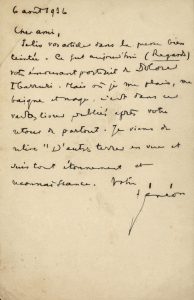 6 août 1936
Cher ami,
Selis vos articles dans la presse bien
teintée. Ce fut aujourd'hui (Regards)
votre émouvant portrait de Dolorès
Ibarruri. Mais où je me plais, me
baigne et nage, c'est dans ce
vaste, publié après votre
retour de partout. Je viens de
relire "D'autres terres en vue" et
suis tout étonnement et
reconnaissance. Votre
Fénéon